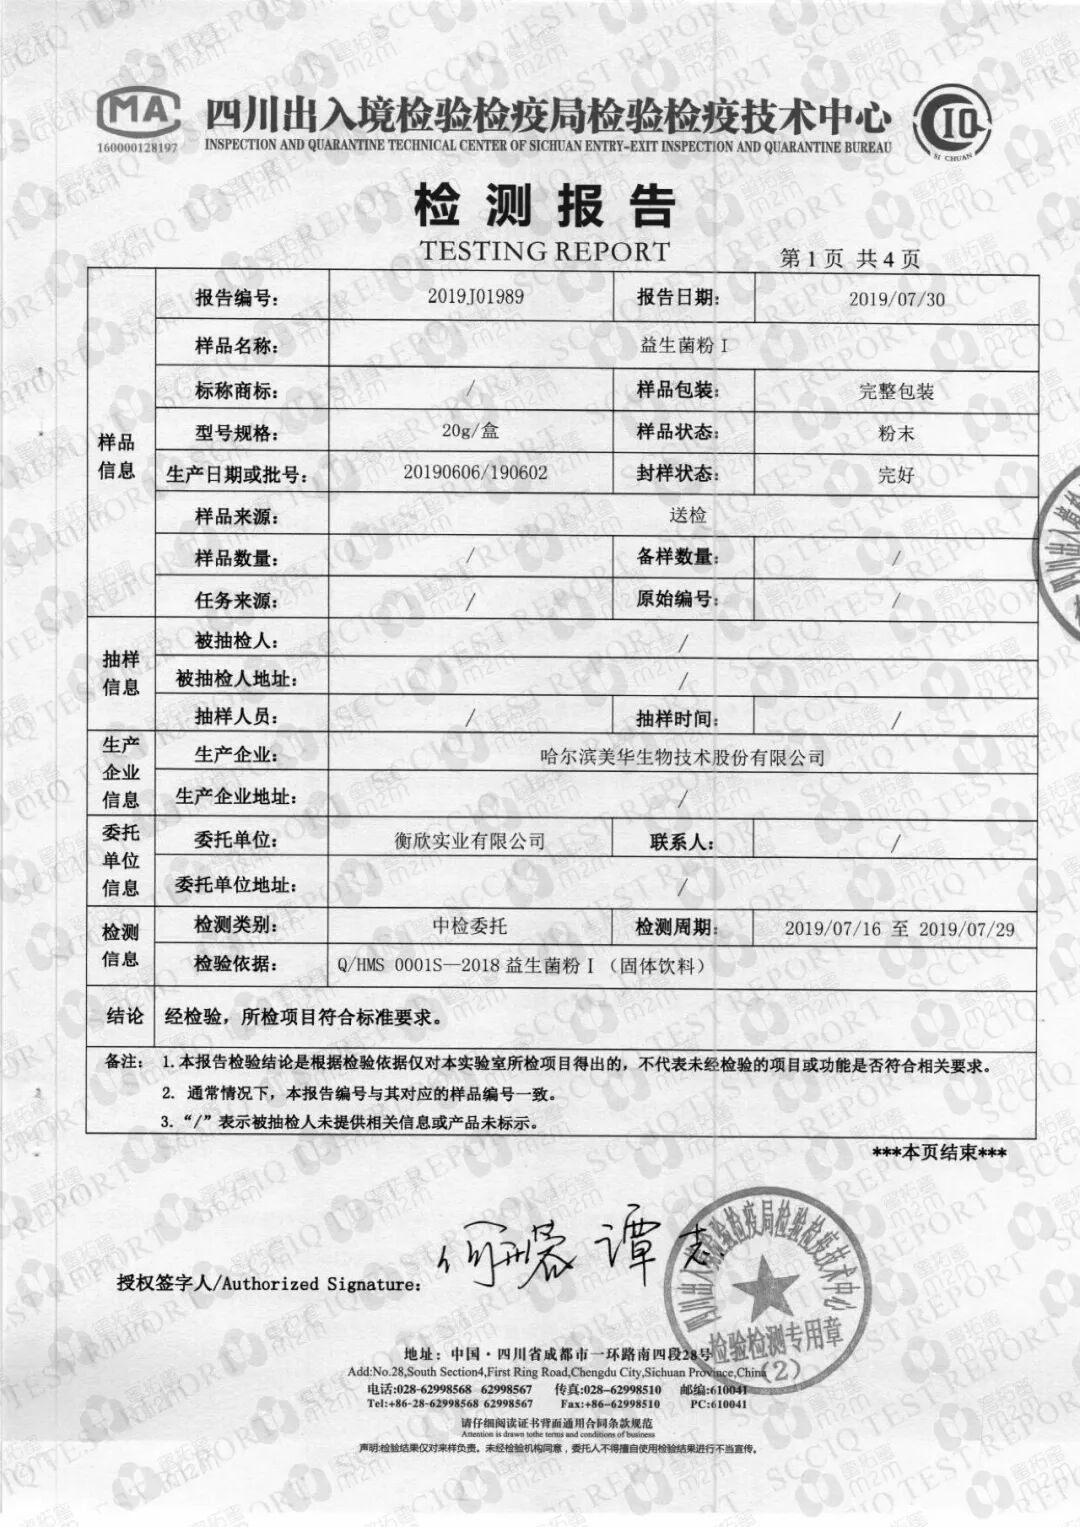 MA
160000128197
四川出入境检验检疫局检验检疫技术中心
INSPECTION AND QUARANTINE TECHNICAL CENTER OF SICHUAN ENTRY-EXIT INSPECTION AND QUARANTINE BUREAU
CIQ
SI CHUAN
检测报告
TESTING REPORT
第1页 共4页
样品信息
报告编号： 2019J01989 报告日期： 2019/07/30
样品名称： 益生菌粉Ⅰ
标称商标： / 样品包装： 完整包装
型号规格： 20g/盒 样品状态： 粉末
生产日期或批号： 20190606/190602 封样状态： 完好
样品来源： 送检
样品数量： / 备样数量： /
任务来源： / 原始编号： /
抽样信息
被抽检人： /
被抽检人地址： /
抽样人员： / 抽样时间： /
生产企业信息
生产企业： 哈尔滨美华生物技术股份有限公司
生产企业地址： /
委托单位信息
委托单位： 衡欣实业有限公司 联系人： /
委托单位地址： /
检测信息
检测类别： 中检委托 检测周期： 2019/07/16 至 2019/07/29
检验依据： Q/HMS 0001S—2018 益生菌粉Ⅰ（固体饮料）
结论 经检验，所检项目符合标准要求。
备注： 1.本报告检验结论是根据检验依据仅对本实验室所检项目得出的，不代表未经检验的项目或功能是否符合相关要求。
2. 通常情况下，本报告编号与其对应的样品编号一致。
3.“/”表示被抽检人未提供相关信息或产品未标示。
***本页结束***
授权签字人/Authorized Signature：
谭志
四川出入境检验检疫局检验检疫技术中心
检验检测专用章
(2)
地址：中国·四川省成都市一环路南四段28号
Add:No.28,South Section4,First Ring Road,Chengdu City,Sichuan Province,China
电话:028-62998568 62998567 传真:028-62998510 邮编:610041
Tel:+86-28-62998568 62998567 Fax:+86-62998510 PC:610041
请仔细阅读证书背面通用合同条款规范
Attention is drawn tothe terms and conditions of business
声明:检验结果仅对来样负责。未经检验机构同意，委托人不得擅自使用检验结果进行不当宣传。